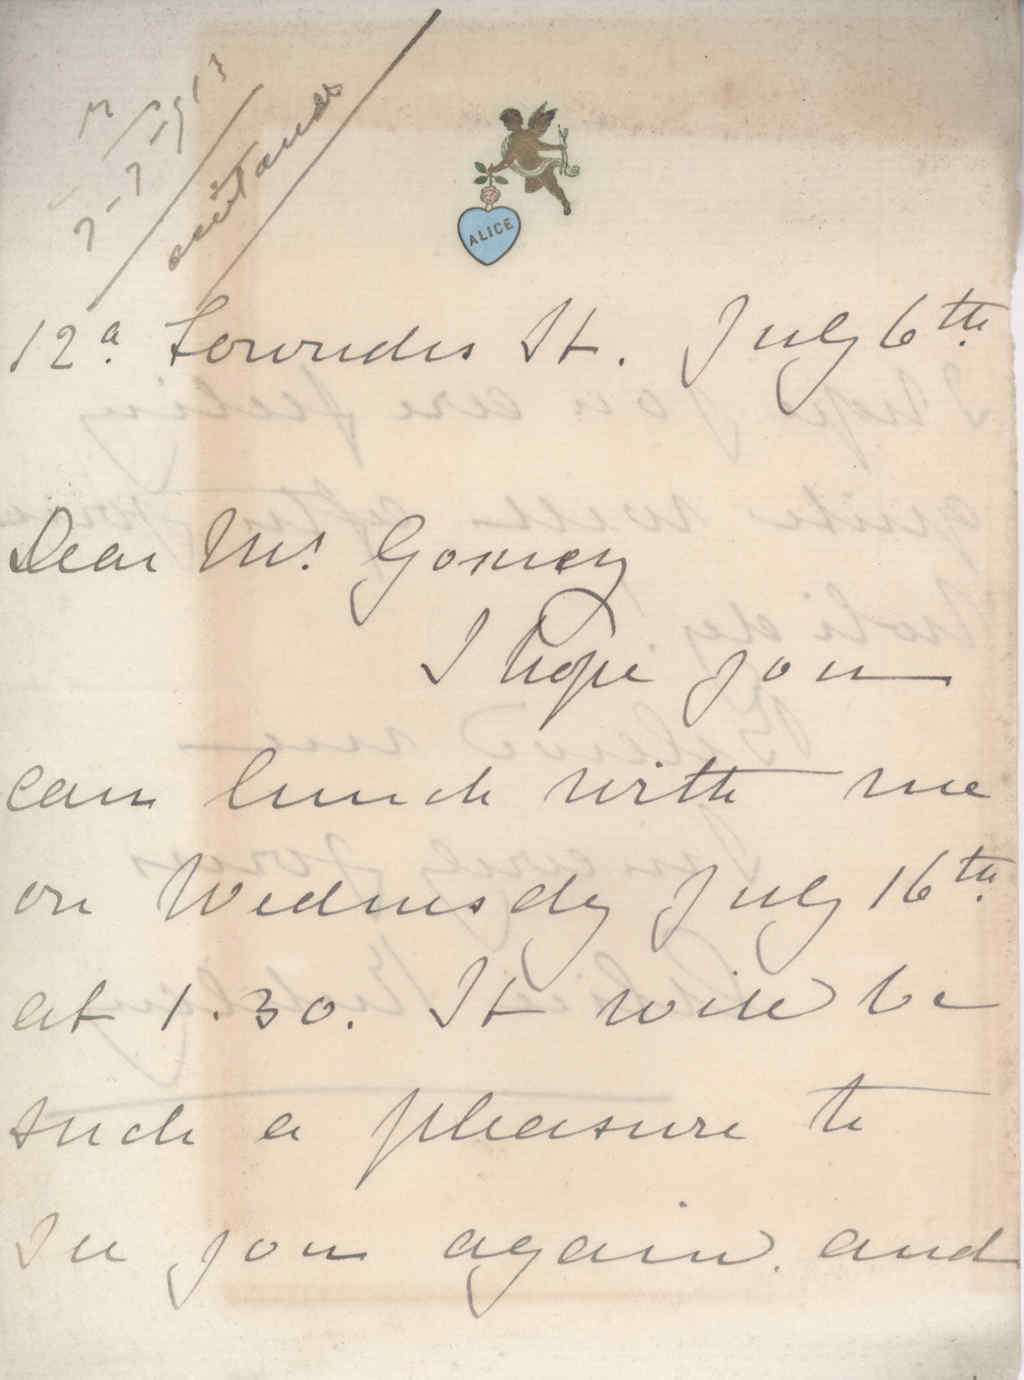 7-7-913
aceitando
ALICE
12a. Lowndes St. July 6th.
Dear Mr. Gomez
I hope you
can lunch with me
on Wednesday July 16th.
at 1.30. It will be
such a pleasure to
see you again. and